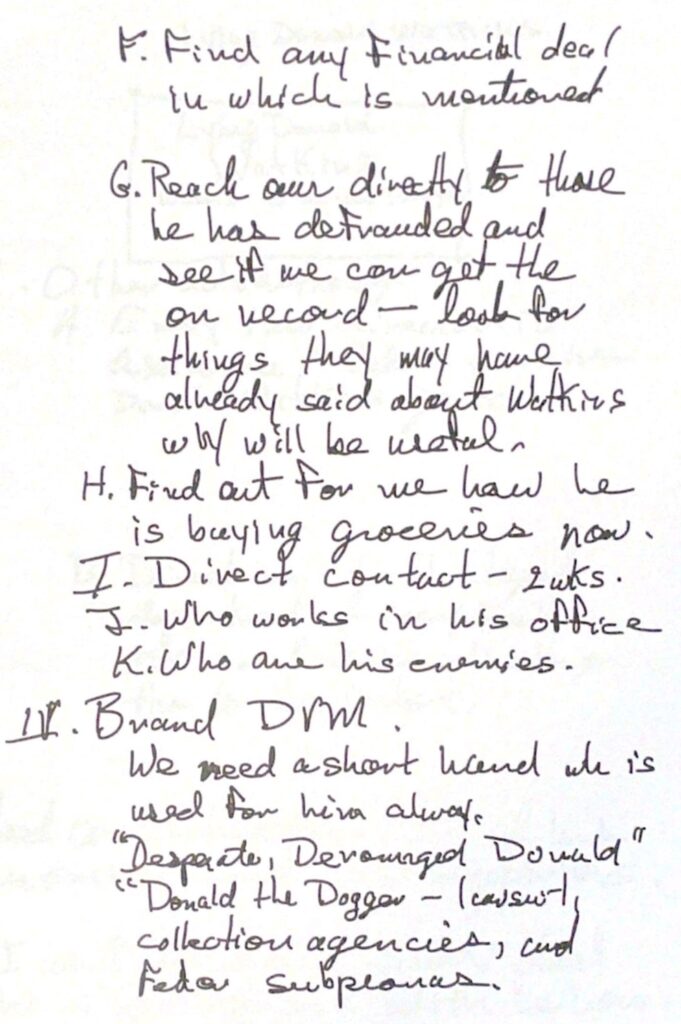 F. Find any Financial deal
in which is mentioned
G. Reach our directly to those
he has defrauded and
see if we can get the
on record — look for
things they may have
already said about Watkins
will be
H. Find out for me how he
is buying groceries now.
I. Direct contact — 2wks.
J. Who works in his office
K. Who are his enemies.
IV. Brand
We need a short hand wh is
used for him alway.
"Desparate, Deraunged Donald"
"Donald the Dogger — lawsuit,
collection agencies, and
Feder subpeonas.